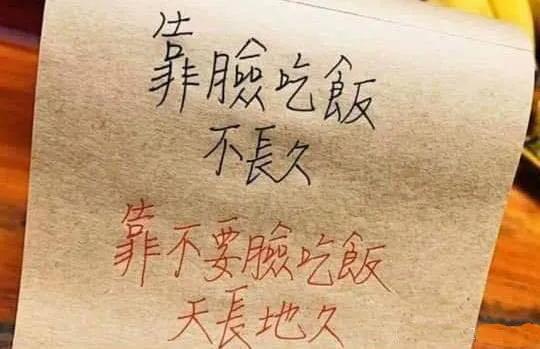 靠臉吃飯
不長久
靠不要臉吃飯
天長地久